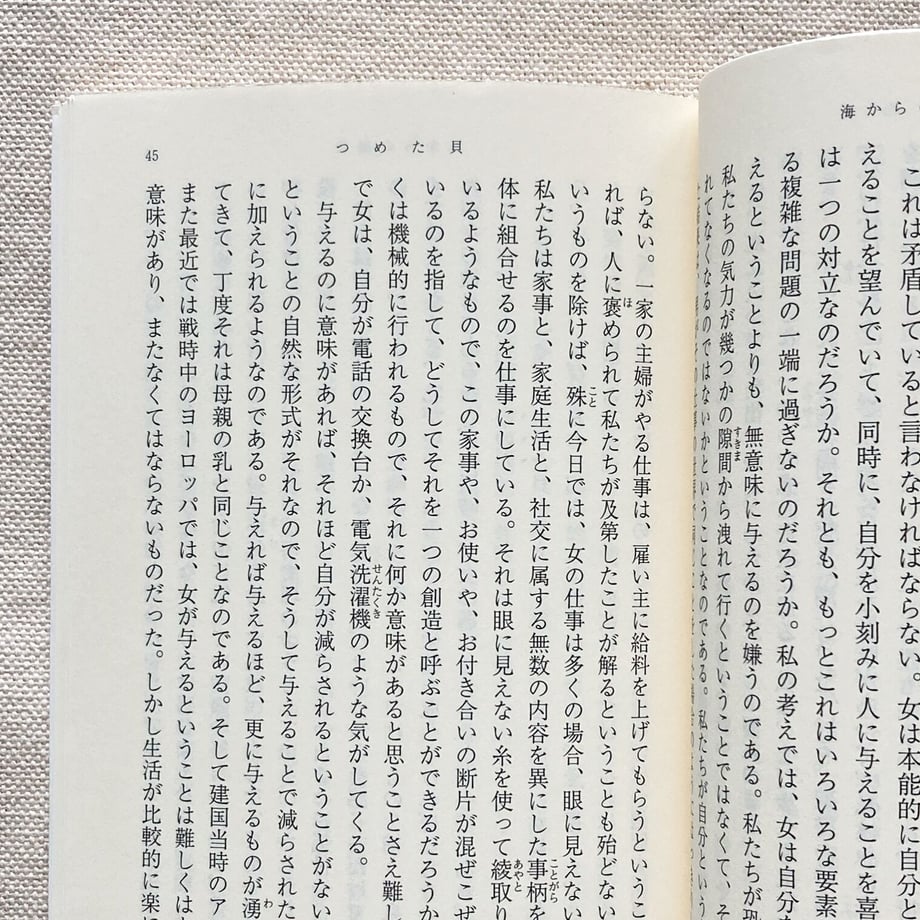 海から
これは矛盾していると言わなければならない。女は本能的に自分
えることを望んでいて、同時に、自分を小刻みに人に与えることを喜
は一つの対立なのだろうか。それとも、もっとこれはいろいろな要素
る複雑な問題の一端に過ぎないのだろうか。私の考えでは、女は自分
えるということよりも、無意味に与えるのを嫌うのである。私たちが恐
私たちの気力が幾つかの隙間から洩れて行くということではなくて、そ
れてなくなるのではないかということなのである。私たちが自分という
つめた貝
45
らない。一家の主婦がやる仕事は、雇い主に給料を上げてもらうというこ
れば、人に褒められて私たちが及第したことが解るということも殆どない
いうものを除けば、殊に今日では、女の仕事は多くの場合、眼に見えない
私たちは家事と、家庭生活と、社交に属する無数の内容を異にした事柄を
体に組合せるのを仕事にしている。それは眼に見えない糸を使って綾取り
いるようなもので、この家事や、お使いや、お付き合いの断片が混ぜこぜ
いるのを指して、どうしてそれを一つの創造と呼ぶことができるだろうか
くは機械的に行われるもので、それに何か意味があると思うことさえ難し
で女は、自分が電話の交換台か、電気洗濯機のような気がしてくる。
与えるのに意味があれば、それほど自分が減らされるということがない
ということの自然な形式がそれなので、そうして与えることで減らされた
に加えられるようなのである。与えれば与えるほど、更に与えるものが湧
てきて、丁度それは母親の乳と同じことなのである。そして建国当時のア
また最近では戦時中のヨーロッパでは、女が与えるということは難しくは
意味があり、またなくてはならないものだった。しかし生活が比較的に楽